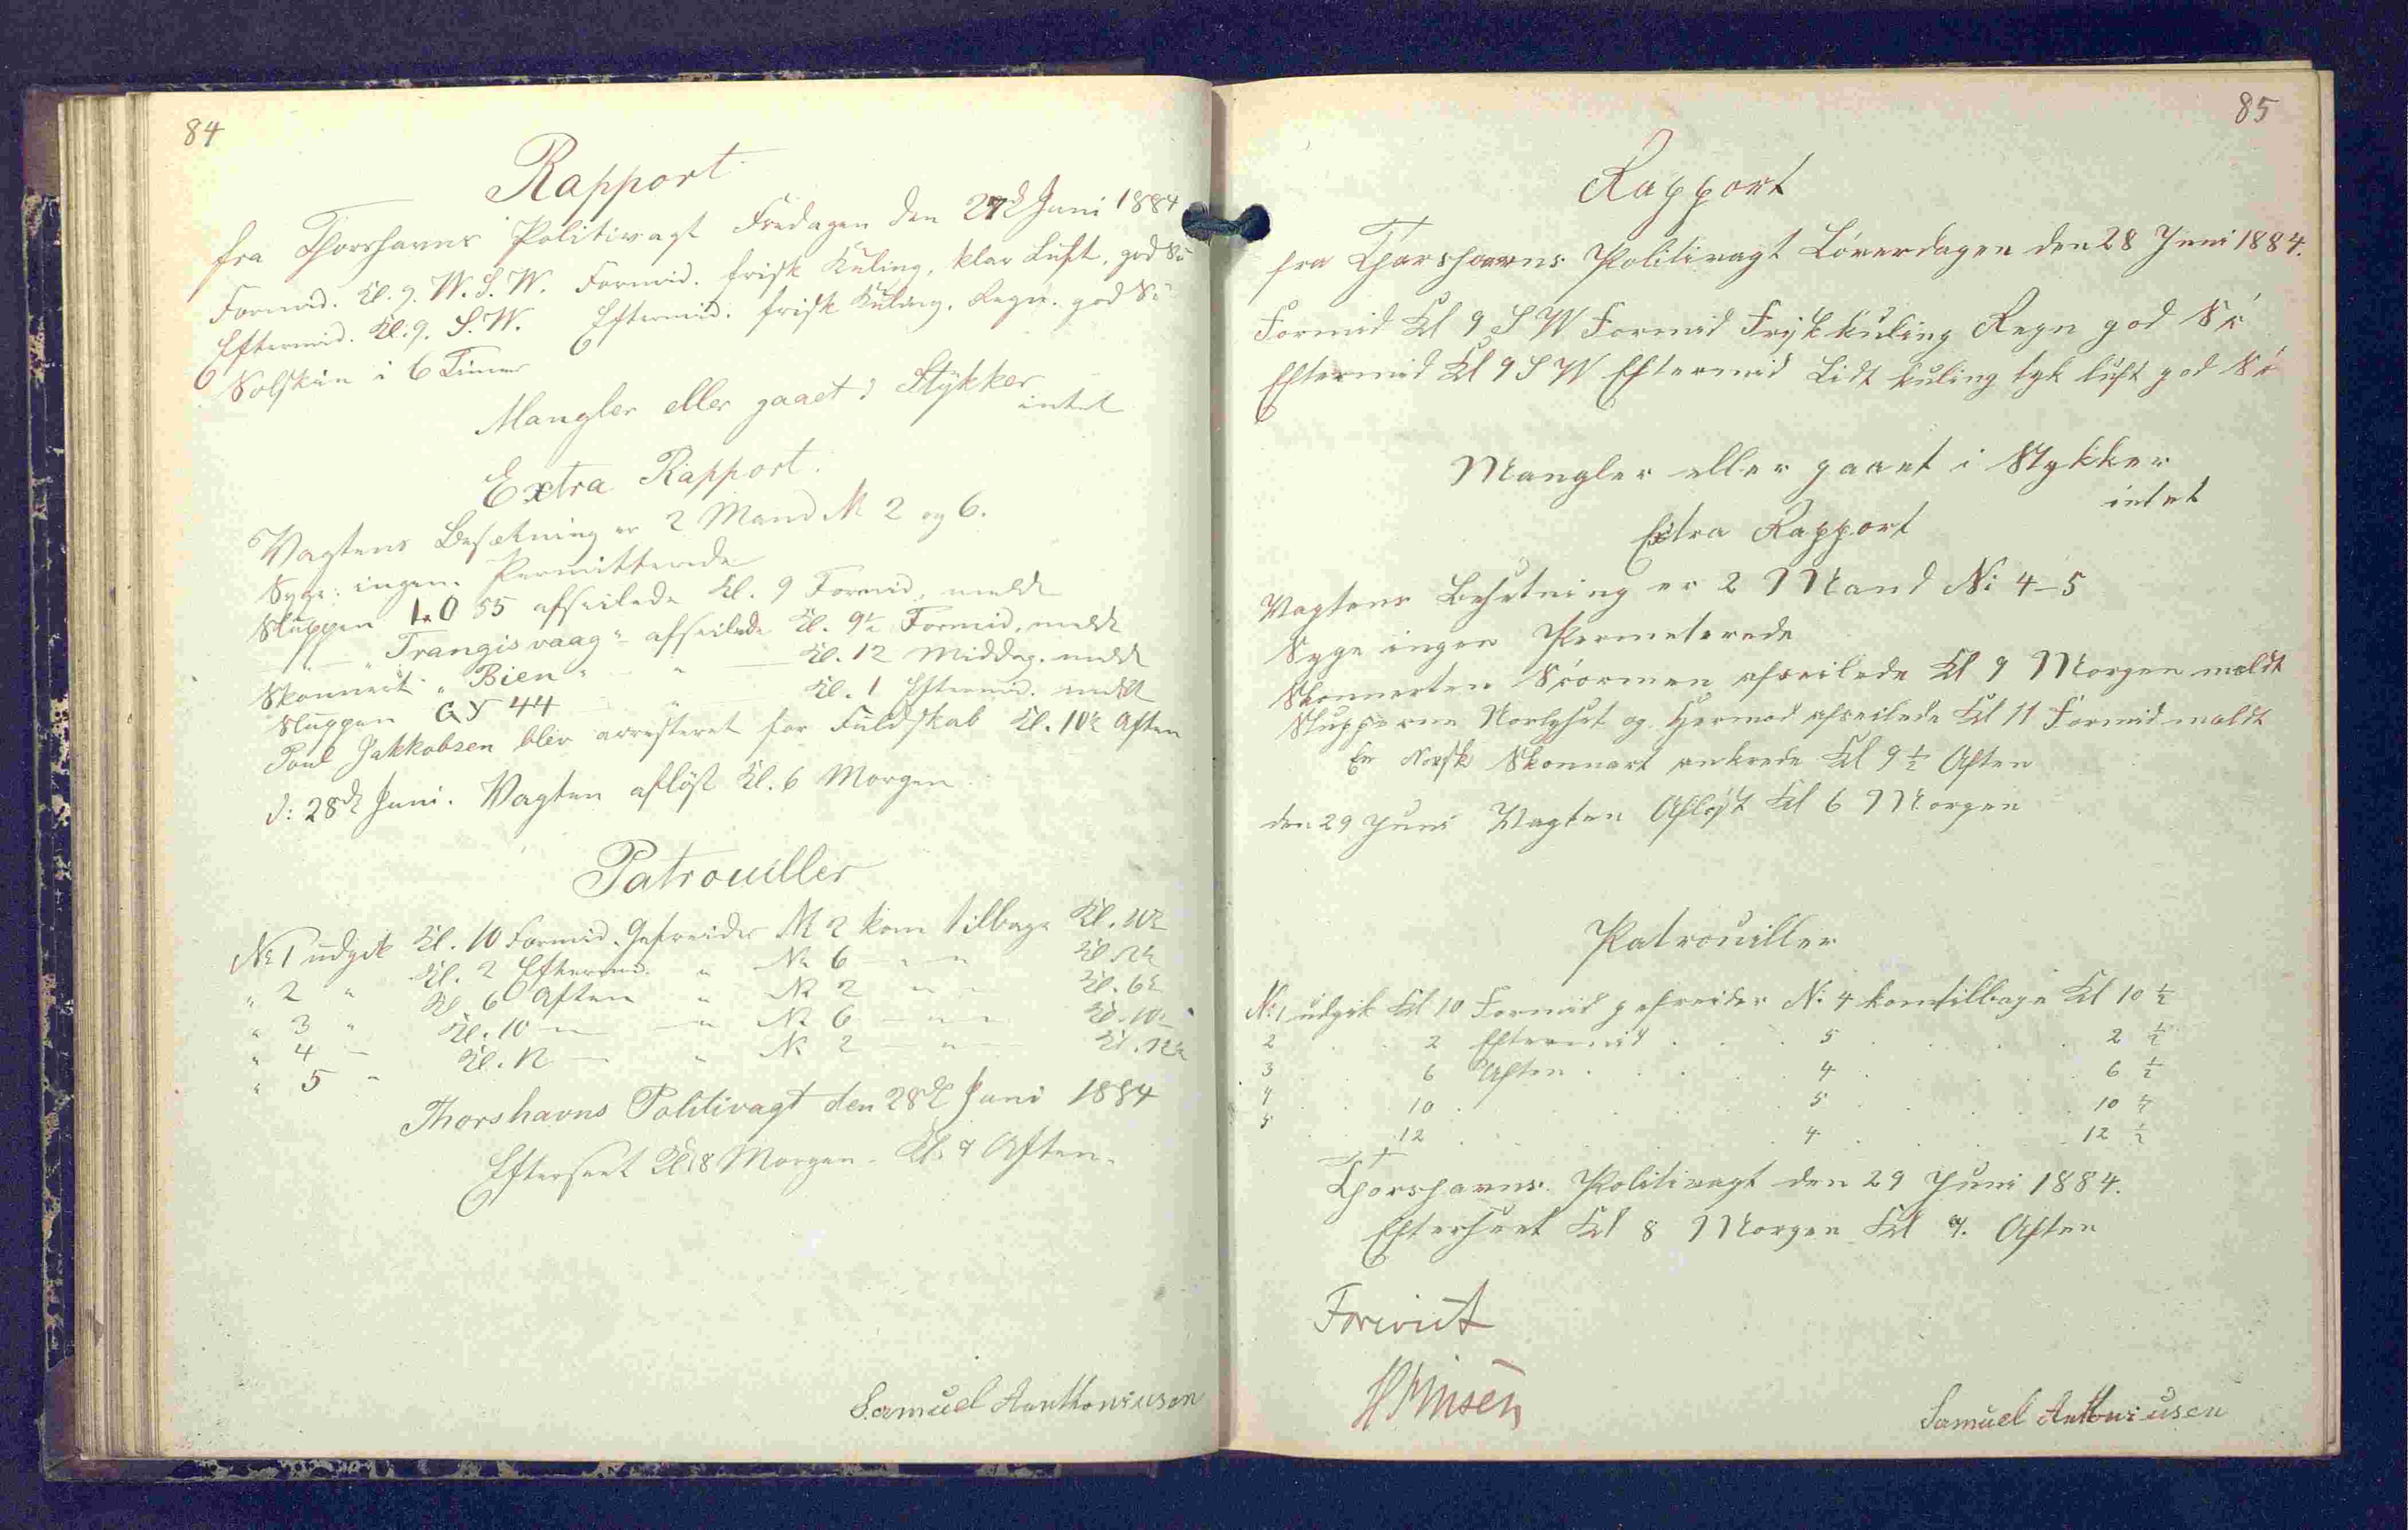 84
Rapport
fra Thorshavns Politivagt Fredagen den 27d Juni 1884
Formid. Kl. 9. W.S.W. Formid. frisk Kuling, klar Luft, god Sö
Eftermid. Kl. 9. S.W. Eftermid. frisk Kuling. Regn. god Sö
Solskin i 6 Timer
Mangler eller gaaet i Stykker
intet
Extra Rapport.
Vagtens Besætning er 2 Mand № 2 og 6.
Syge: ingen. Permitterede
Sluppen LO 55 afseilede Kl. 9 Formid. meldt
— " — "Trangisvaag" afseilede Kl. 9½ Formid. meldt
Skonnert "Bien" — " — Kl. 12 Middag. meldt
Sluppen GY 44 — " — Kl. 1 Eftermid. meldt
Poul Jakkobsen blev arresteret for Fuldskab Kl. 10½ Aften
d: 28d Juni. Vagten aflöst Kl. 6 Morgen
Patrouiller
№ 1 udgik Kl. 10 Formid. Gefreider № 2 kom tilbage Kl. 10½
" 2 " Kl. 2 Eftermid. " № 6 — " — " Kl. 2½
" 3 " Kl. 6 Aften " № 2 — " — Kl. 6½
" 4 — Kl. 10 — " — " № 6 — " — Kl. 10½
" 5 " Kl. 12 — " № 2 — " — Kl. 12½
Thorshavns Politivagt den 28d Juni 1884
Efterseet Kl. 8 Morgen – Kl. 9 Aften.
Samuel Anthoniusen
85
Rapport
fra Thorshavns Politivagt Löverdagen den 28 Juni 1884.
Formid Kl 9 S W Formid Frisk kuling Regn god Sö
Eftermid Kl 9 S W Eftermid Lidt kuling tyk luft god Sö
Mangler eller gaaet i Stykker
intet
Extra Rapport
Vagtens Besetning er 2 Mand N: 4–5
Syge ingen Permeterede
Skonnerten Söormen afseilede Kl 9 Morgen meldt
Slupperne Norlyset og Hermod afseilede Kl 11 Formid meldt
En Norsk Skonnart ankrede Kl 9 ½ Aften
den 29 Juni Vagten Aflöst Kl 6 Morgen
Patrouiller
N: 1 udgik Kl 10 Formid gefreider N: 4 kom tilbage Kl 10 ½
2 . . 2 Eftermid . . . 5 . . . . 2 ½
3 . . 6 Aften . . . 4 . . . . 6 ½
4 . . 10 . . . 5 . . . . 10 ½
5 . . 12 . . . 4 . . . . 12 ½
Thorshavns Politivagt den 29 Juni 1884.
Efterseet Kl 8 Morgen Kl 9. Aften
Forevist
Samuel Anthoniusen